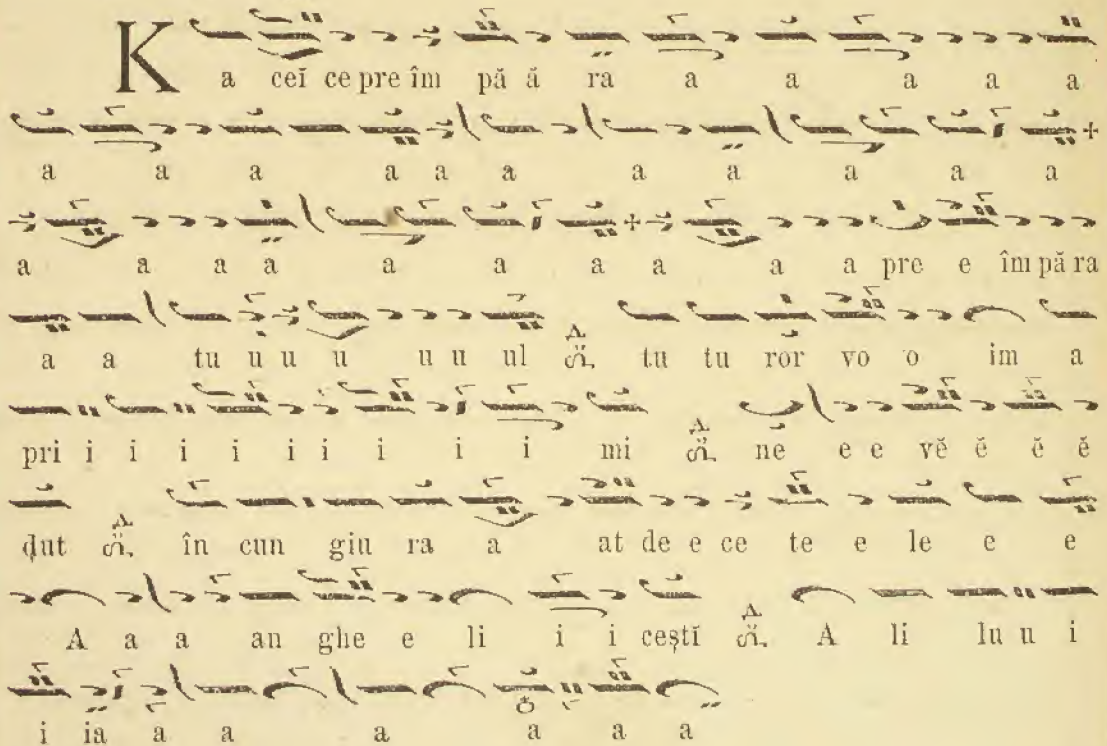 K a ceĭ ce pre îm pă ă ra a a a a a
a a a a a a a a a a a
a a a a a a a a a a pre e îm pă ra
a a tu u u u u u ul tu tu ror vo o im a
pri i i i i i i i i i mi nĕ e e vĕ ĕ ĕ ĕ
ḑut în cun giu ra a at de e ce te e le e e
A a a an ghe e li i i ceștĭ A li lu u i
i ia a a a a a a